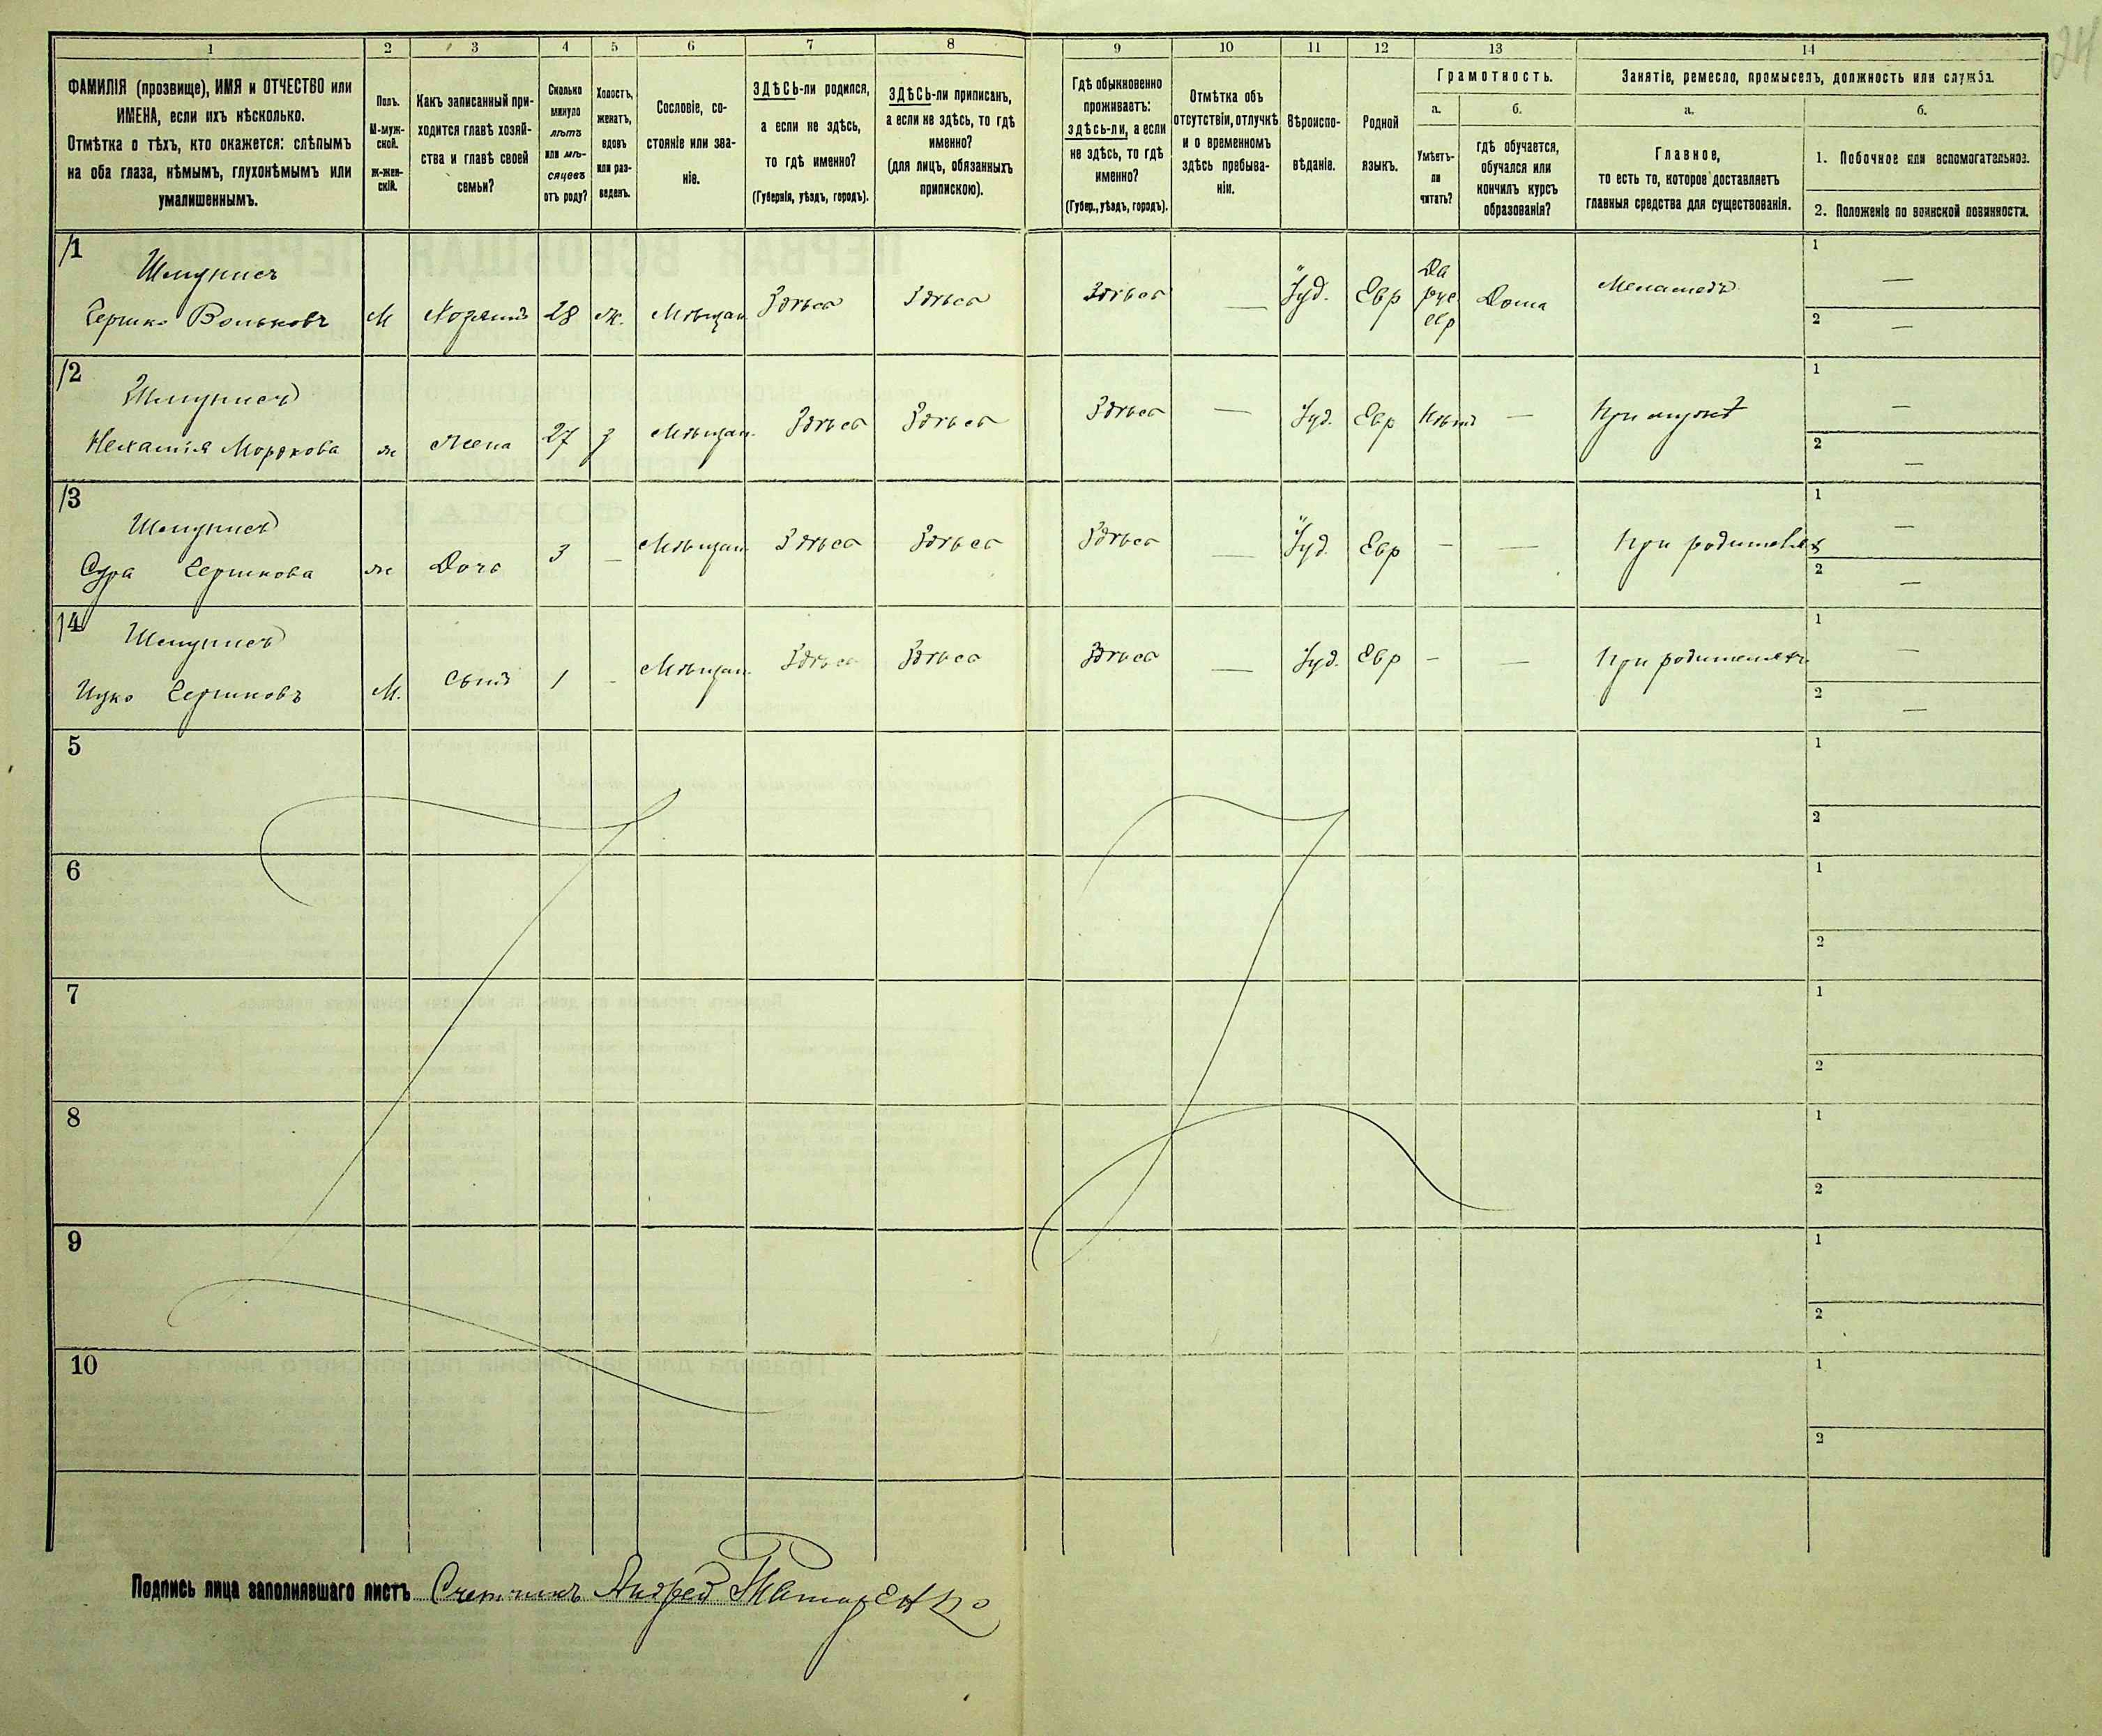 24
1 2 3 4 5 6 7 8 9 10 11 12 13 14
ФАМИЛІЯ (прозвище), ИМЯ и ОТЧЕСТВО или
ИМЕНА, если ихъ нѣсколько.
Отмѣтка о тѣхъ, кто окажется: слѣпымъ
на оба глаза, нѣмымъ, глухонѣмымъ или
умалишеннымъ.
Полъ.
М-муж-
ской.
Ж-жен-
скій.
Какъ записанный при-
ходится главѣ хозяй-
ства и главѣ своей
семьи?
Сколько
минуло
лѣтъ
или мѣ-
сяцевъ
отъ роду?
Холостъ,
женатъ,
вдовъ
или раз-
веденъ.
Сословіе, со-
стояніе или зва-
ніе.
ЗДѢСЬ-ли родился,
а если не здѣсь,
то гдѣ именно?
(Губернія, уѣздъ, городъ).
ЗДѢСЬ-ли приписанъ,
а если не здѣсь, то гдѣ
именно?
(для лицъ, обязанныхъ
припискою).
Гдѣ обыкновенно
проживаетъ:
здѣсь-ли, а если
не здѣсь, то гдѣ
именно?
(Губер., уѣздъ, городъ).
Отмѣтка объ
отсутствіи, отлучкѣ
и о временномъ
здѣсь пребыва-
ніи.
Вѣроиспо-
вѣданіе.
Родной
языкъ.
Грамотность.
а. б.
Умѣетъ-
ли
читать?
гдѣ обучается,
обучался или
кончилъ курсъ
образованія?
Занятіе, ремесло, промыселъ, должность или служба.
а. б.
Главное,
то есть то, которое доставляетъ
главныя средства для существованія.
1. Побочное или вспомогательное.
2. Положеніе по воинской повинности.
1
Гершко Вольковъ М Хозяинъ 28 ж. Мѣщан Здѣсь Здѣсь Здѣсь — Іуд. Евр Да рус евр Дома Меламедъ 1 — 2 —
2
Нехамія Мордкова ж Жена 27 з Мѣщан. Здѣсь Здѣсь Здѣсь — Іуд. Евр Нѣтъ — При мужѣ 1 — 2 —
3
Сура Гершкова ж Дочь 3 — Мѣщан Здѣсь Здѣсь Здѣсь — Іуд. Евр — — При родителях 1 — 2 —
4
Ицко Гершковъ М. Сынъ 1 - Мѣщан. Здѣсь Здѣсь Здѣсь — Іуд. Евр — — При родителяхъ 1 — 2 —
5 1 2
6 1 2
7 1 2
8 1 2
9 1 2
10 1 2
Подпись лица заполнявшаго листъ Счетчикъ Андрей